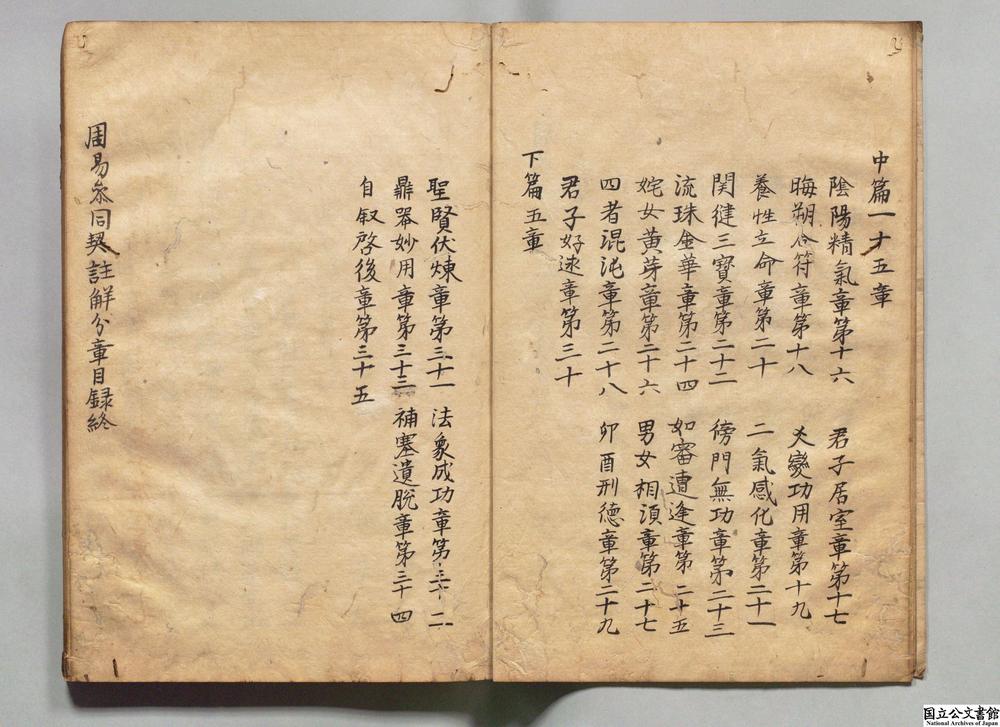 中篇一十五章
陰陽精氣章第十六 君子居室章第十七
晦朔合符章第十八 爻變功用章第十九
養性立命章第二十 二氣感化章第二十一
関鍵三寳章第二十二 傍門無功章第二十三
流珠金華章第二十四 如審遭逢章第二十五
姹女黄芽章第二十六 男女相湏章第二十七
四者混沌章第二十八 卯酉刑德章第二十九
君子好逑章第三十
下篇五章
聖賢伏煉章第三十一 法象成功章第三十二
鼎器妙用章第三十三 補塞遺脱章第三十四
自叙啓後章第三十五
周易叅同契註解分章目録終
国立公文書館
National Archives of Japan